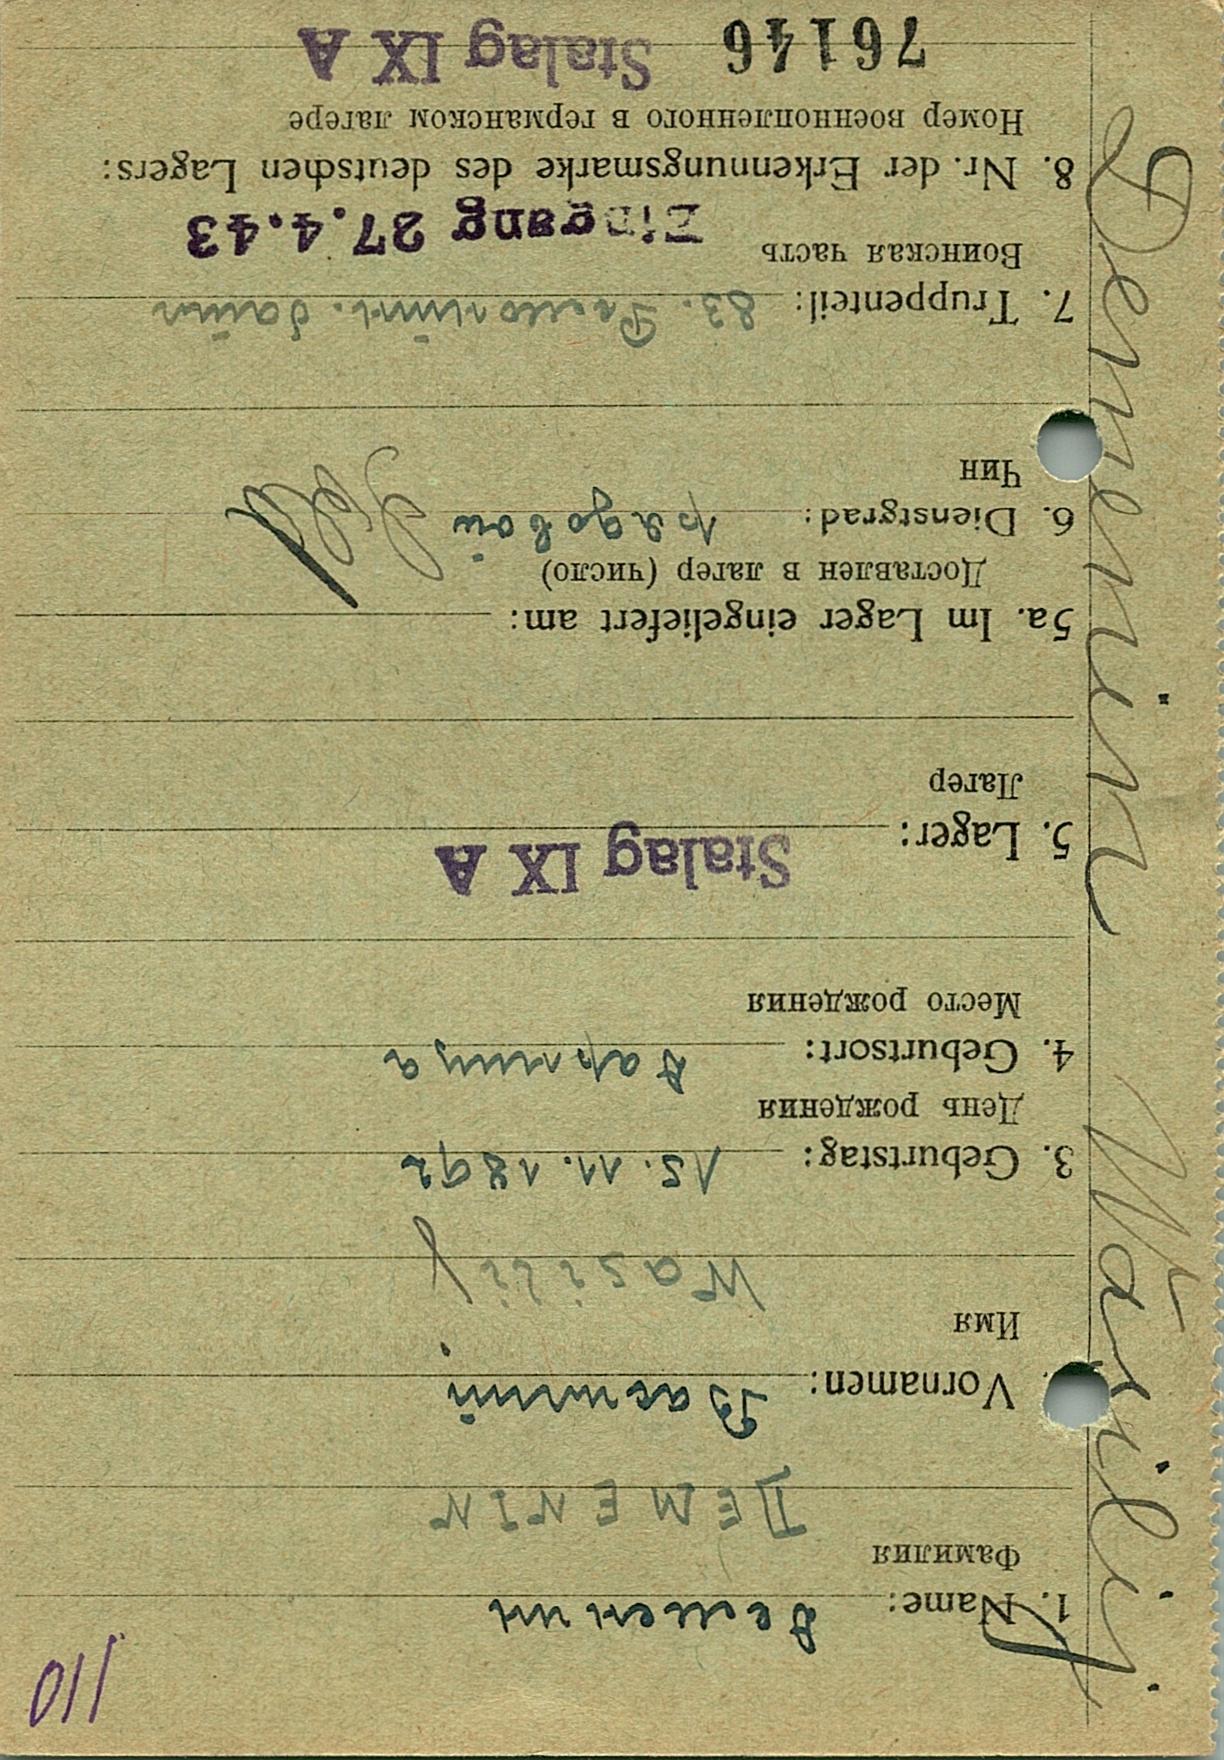 110
1. Name: Деменин
Фамилия
DEMENIN
Vornamen: Василий
Имя
Wasilij
3. Geburtstag: 15.11.1892
День рождения
4. Geburtsort:
Место рождения
5. Lager: Stalag IX A
Лагерь
5a. Im Lager eingeliefert am:
Доставлен в лагерь (число)
6. Dienstgrad: рядовой Sold
Чин
7. Truppenteil: 83.
Воинская часть
Eingang 27.4.43
8. Nr. der Erkennungsmarke des deutschen Lagers:
Номер военнопленного в германском лагере
76146 Stalag IX A
Demenin Wasilij